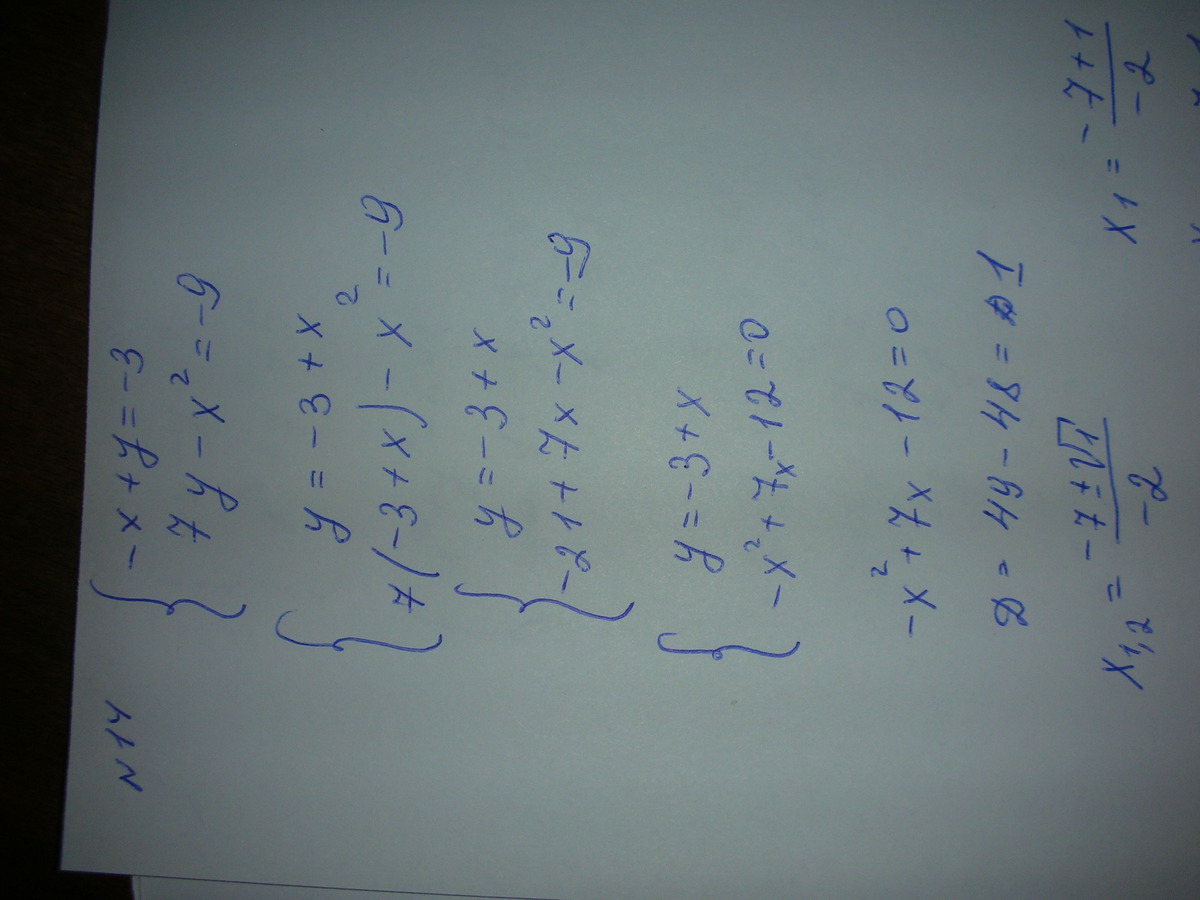 N 14
{ -x + y = -3
7y - x² = -9
{ y = -3 + x
7(-3 + x) - x² = -9
{ y = -3 + x
-21 + 7x - x² = -9
{ y = -3 + x
-x² + 7x - 12 = 0
-x² + 7x - 12 = 0
D = 49 - 48 = 1
x1,2 = (-7 ± √1) / -2    x1 = (-7 + 1) / -2